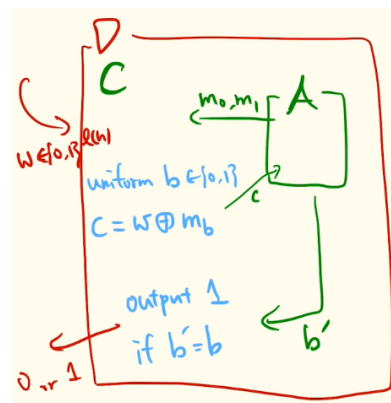 D
C
A
m₀, m₁
w ∈ {0,1}^ℓ(n)
uniform b ∈ {0,1}
c
C = w ⊕ m_b
output 1
if b' = b
b'
0 or 1